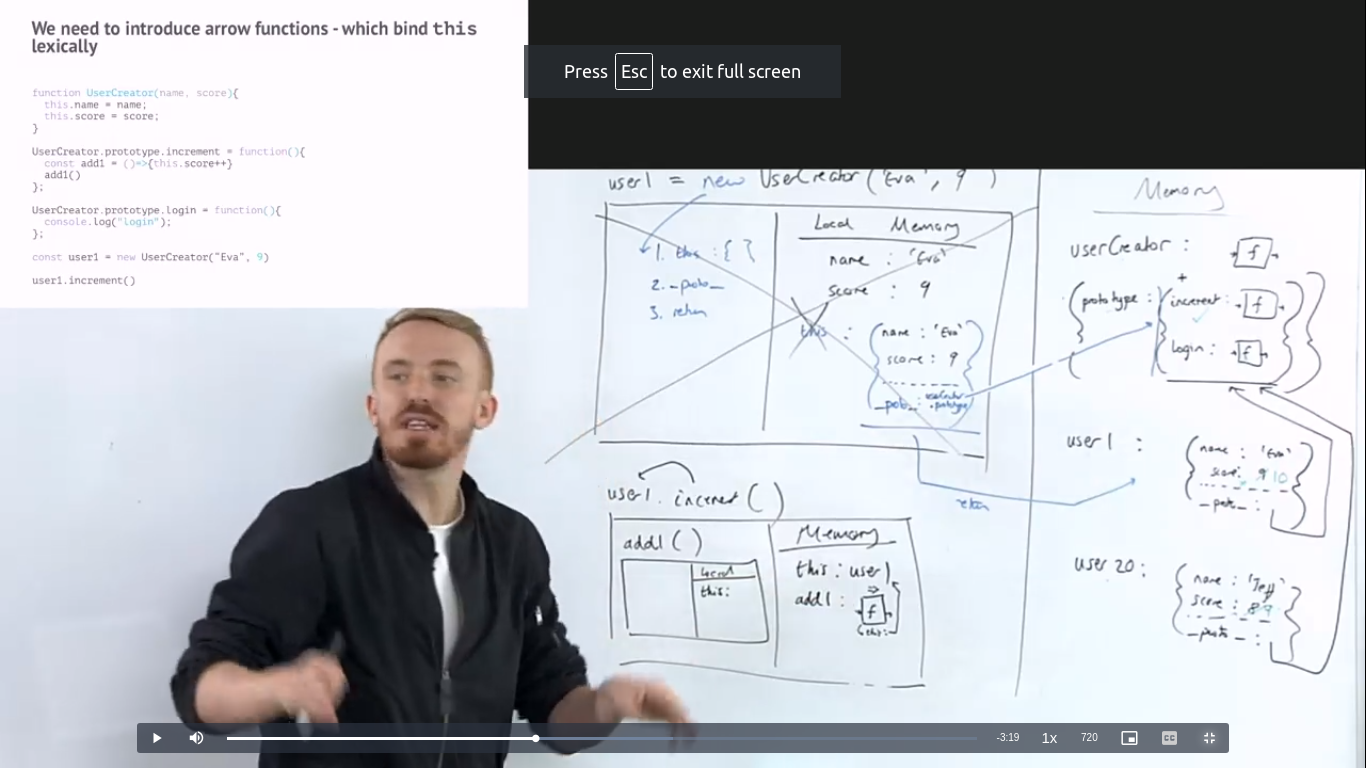 We need to introduce arrow functions - which bind this
lexically
function UserCreator(name, score){
this.name = name;
this.score = score;
}
UserCreator.prototype.increment = function(){
const add1 = ()=>{this.score++}
add1()
};
UserCreator.prototype.login = function(){
console.log("login");
};
const user1 = new UserCreator("Eva", 9)
user1.increment()
Press Esc to exit full screen
user1 = new UserCreator('Eva', 9)
1. this : { }
2. _proto_
3. return
Local Memory
name : 'Eva'
score : 9
this :
name : 'Eva'
score : 9
_proto_ : userCreator
.prototype
return
user1.increment()
add1()
Local
this:
Memory
this : user1
add1 : f
this:
Memory
userCreator : f
+
prototype : increment : f
login : f
user1 :
name : 'Eva'
score: 9 10
_proto_ :
user20 :
name : 'Jeff'
score : 8 9
_proto_ :
-3:19
1x
720
CC